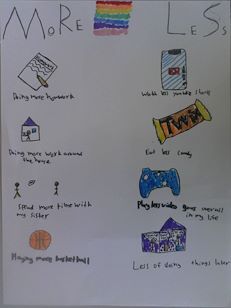 MoRE LESs
Doing more homework
Watch less youtube shorts
TWIX
Doing more work around
the house
Eat less candy
Spend more time with
my sister
Play less video games overall
in my life
Playing more basketball
Less of doing things later